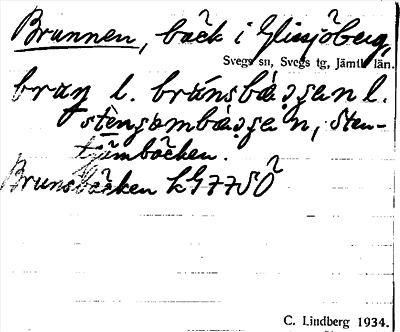 Brunnen, bäck i Glissjöberg,
Svegs sn, Svegs tg, Jämtl. län.
bruṇ l. brúnsbæ̀ʒʒan l.
stèngəmbæʒʒa`n, Sten-
tjärnbäcken.
Brunsbäcken kG 7750
C. Lindberg 1934.